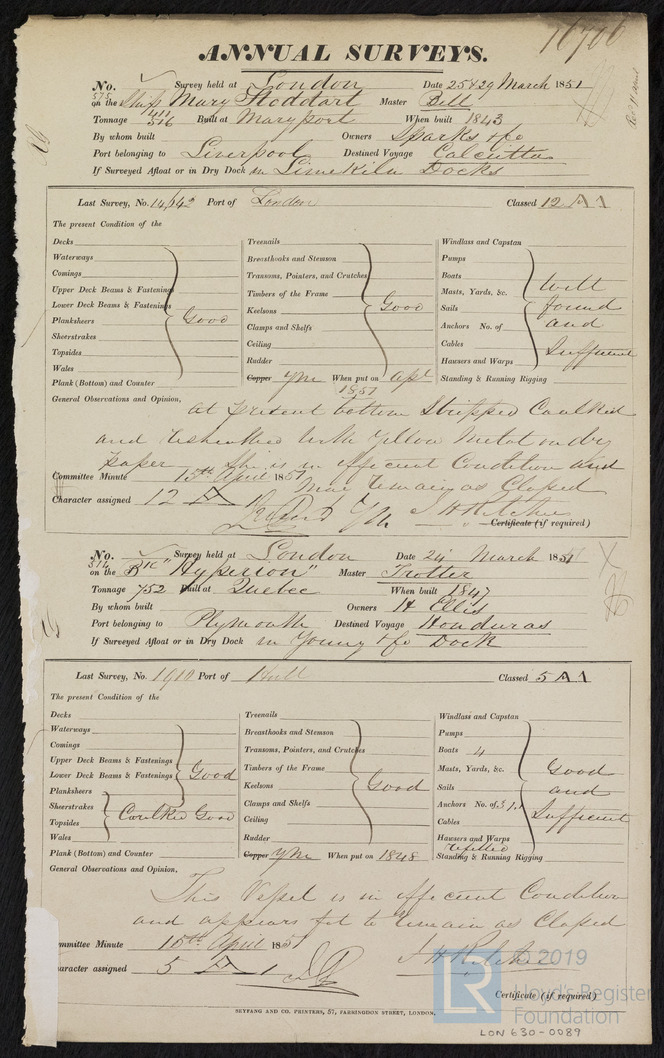 16706
ANNUAL SURVEYS.
No. Survey held at London Date 25 & 29 March 1851
575 on the Ship Mary Stoddart Master Bell
Tonnage 516 Built at Maryport When built 1843
By whom built Owners Sparks & Co
Port belonging to Liverpool Destined Voyage Calcutta
If Surveyed Afloat or in Dry Dock in Limekiln Docks
Last Survey, No. 14142 Port of London Classed 12 A 1
The present Condition of the
Decks
Waterways
Comings
Upper Deck Beams & Fastenings
Lower Deck Beams & Fastenings
Planksheers Good
Sheerstrakes
Topsides
Wales
Plank (Bottom) and Counter
Treenails
Breasthooks and Stemson
Transoms, Pointers, and Crutches
Timbers of the Frame
Keelsons Good
Clamps and Shelfs
Ceiling
Rudder
Copper YM When put on Apl 1851
Windlass and Capstan
Pumps
Boats Well
Masts, Yards, &c.
Sails found
Anchors No. of and
Cables
Hawsers and Warps Sufficient
Standing & Running Rigging
General Observations and Opinion, at present bottom Stripped Caulked
and Resheathed with Yellow Metal on dry
paper She is in efficient Condition and
Committee Minute 15th April 1851 May remain as Classed
Character assigned 12 A 1 J H Ritchie
YM Certificate (if required)
No. Survey held at London Date 24 March 1851
574 on the Bk "Hyperion" Master Trotter
Tonnage 752 Built at Quebec When built 1847
By whom built Owners H Ellis
Port belonging to Plymouth Destined Voyage Honduras
If Surveyed Afloat or in Dry Dock in Young & Co Dock
Last Survey, No. 1910 Port of Hull Classed 5 A 1
The present Condition of the
Decks
Waterways
Comings
Upper Deck Beams & Fastenings
Lower Deck Beams & Fastenings Good
Planksheers
Sheerstrakes Caulked Good
Topsides
Wales
Plank (Bottom) and Counter
Treenails
Breasthooks and Stemson
Transoms, Pointers, and Crutches
Timbers of the Frame
Keelsons Good
Clamps and Shelfs
Ceiling
Rudder
Copper YM When put on 1848
Windlass and Capstan
Pumps
Boats 4
Masts, Yards, &c. Good
Sails and
Anchors No. of 3
Cables Sufficient
Hawsers and Warps
Standing & Running Rigging
General Observations and Opinion,
This Vessel is in efficient Condition
and appears fit to remain as Classed
ommittee Minute 15th April 1851 J H Ritchie
aracter assigned 5 A 1
Certificate (if required)
SEYFANG AND CO. PRINTERS, 57, FARRINGDON STREET, LONDON.
LR © 2019
Lloyd's Register
Foundation
LON 630-0089